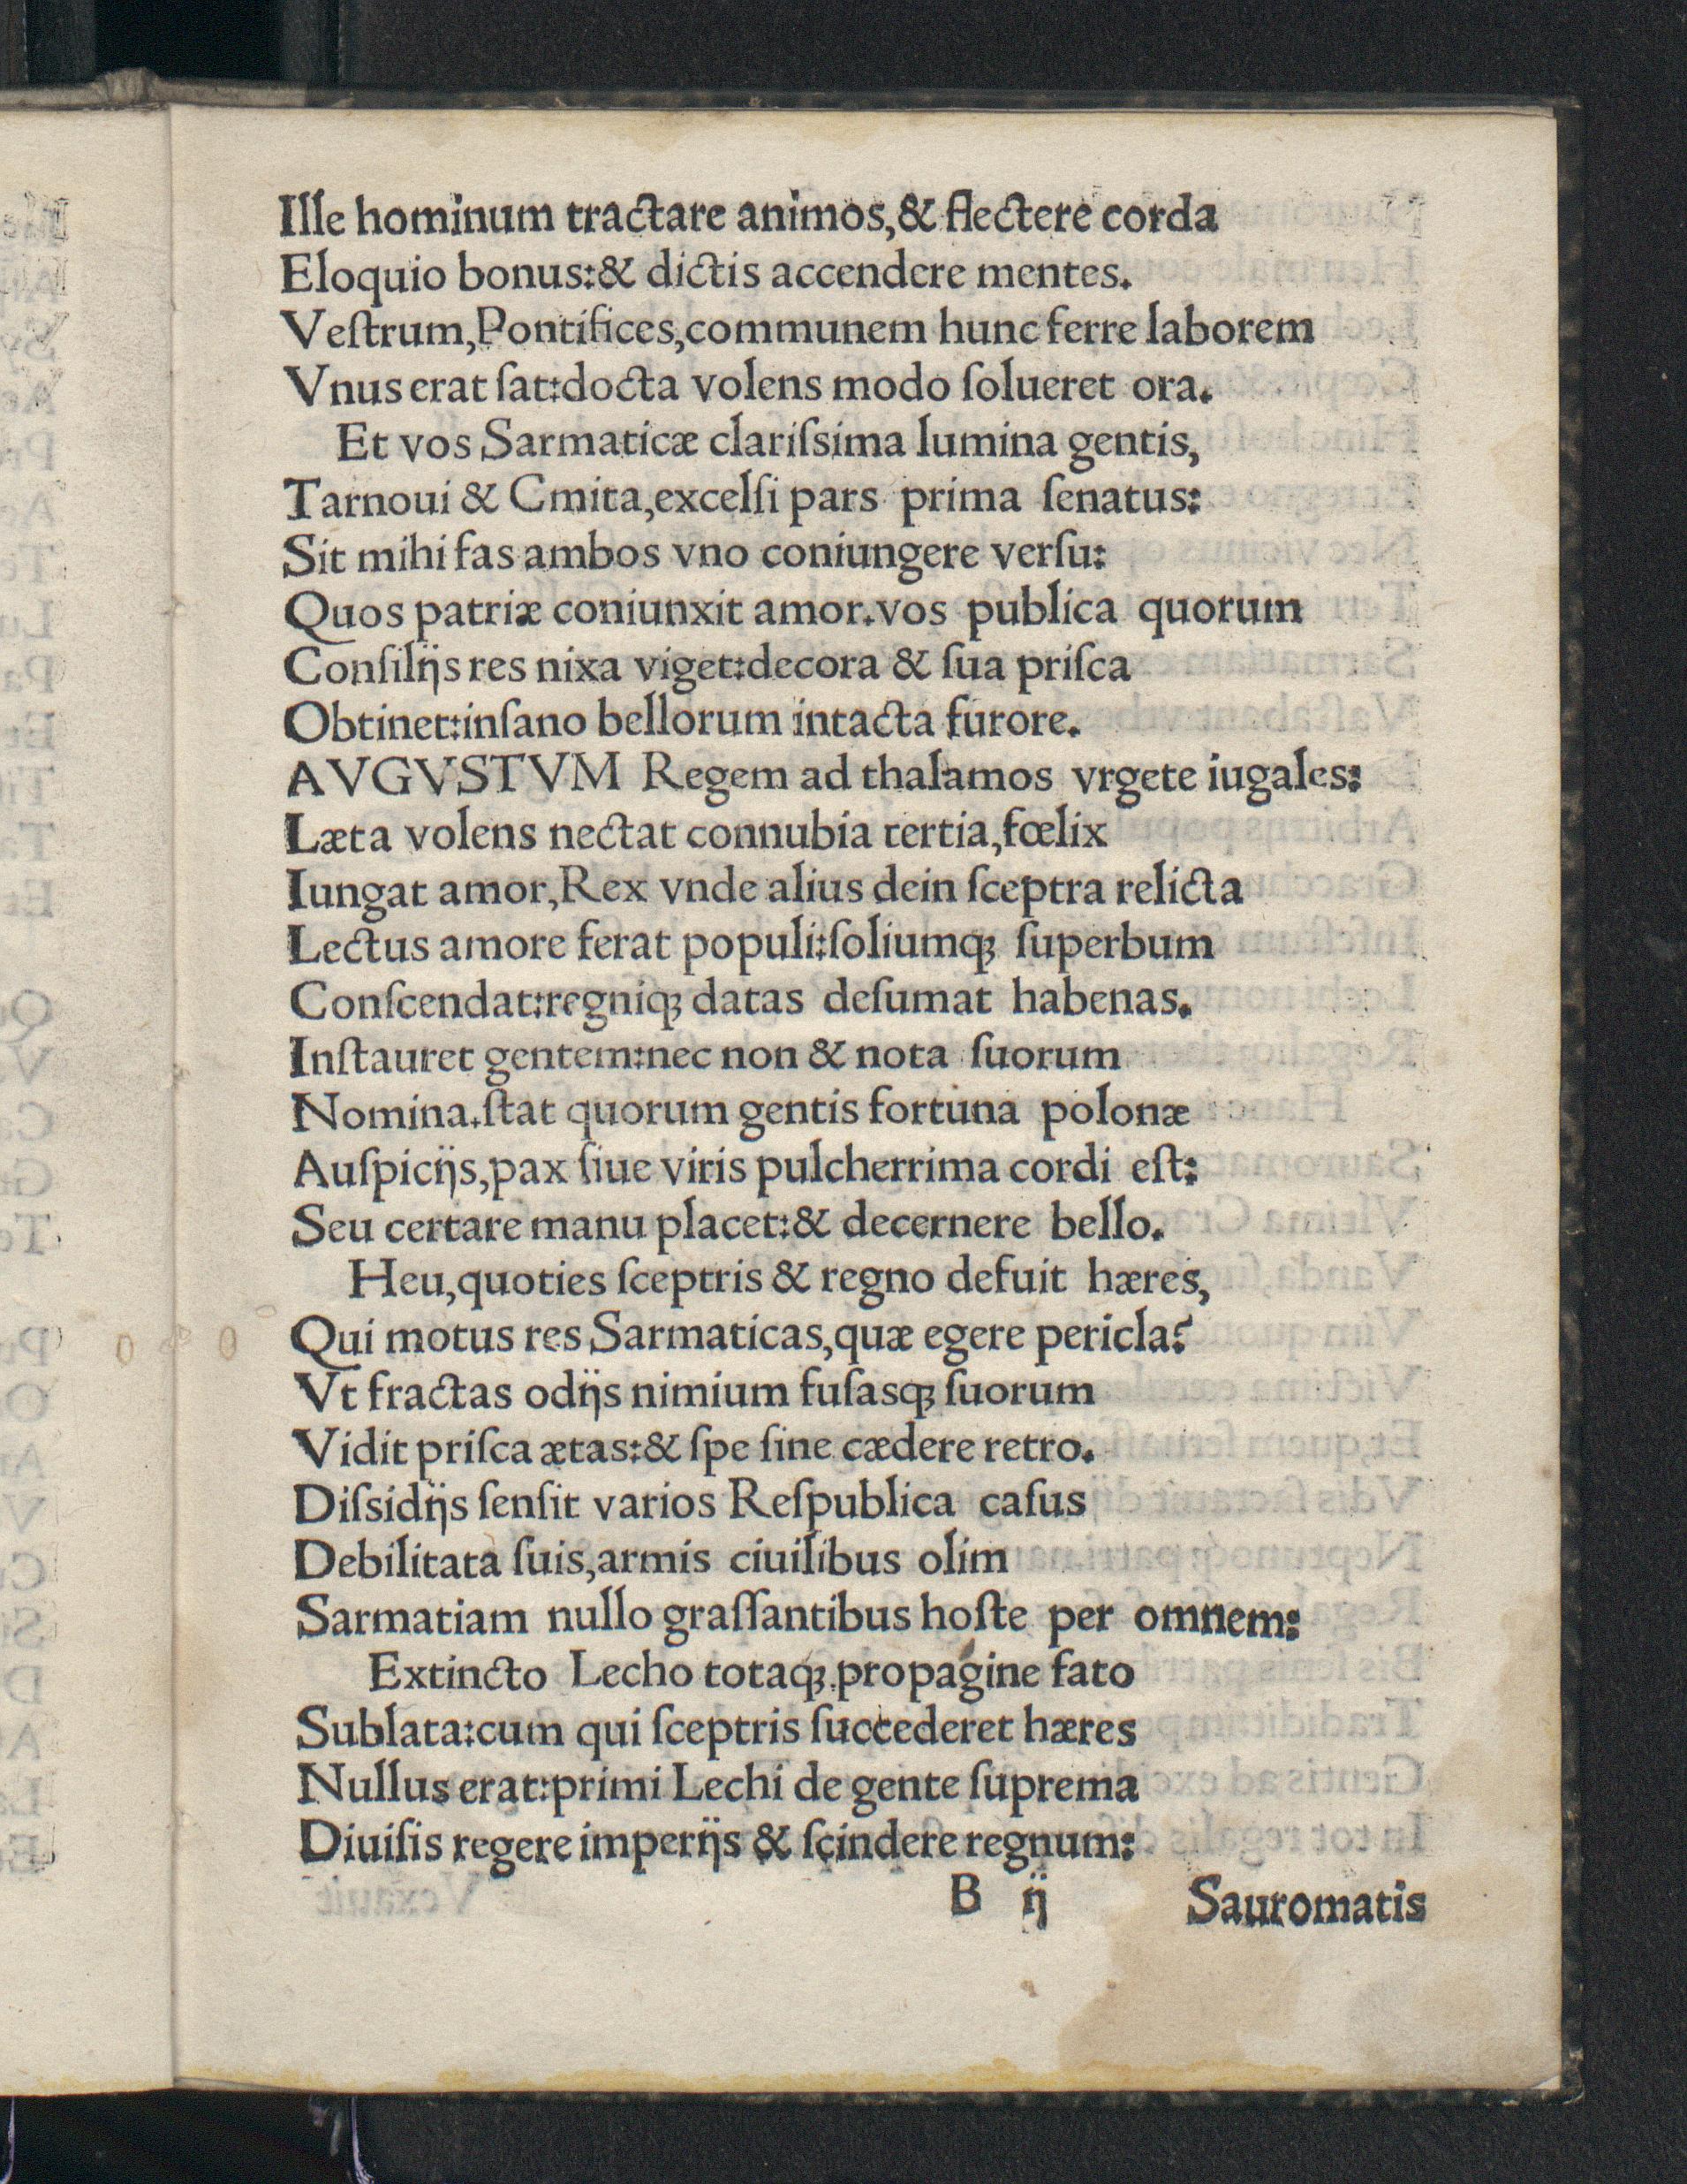 Ille hominum tractare animos,& flectere corda
Eloquio bonus:& dictis accendere mentes.
Veſtrum,Pontifices,communem hunc ferre laborem
Vnus erat ſat:docta volens modo ſolueret ora.
Et vos Sarmaticæ clariſsima lumina gentis,
Tarnoui & Cmita,excelſi pars prima ſenatus:
Sit mihi fas ambos vno coniungere verſu:
Quos patriæ coniunxit amor.vos publica quorum
Conſilijs res nixa viget:decora & ſua priſca
Obtinet:inſano bellorum intacta furore.
AVGVSTVM Regem ad thalamos vrgete iugales:
Læta volens nectat connubia tertia,fœlix
Iungat amor,Rex vnde alius dein ſceptra relicta
Lectus amore ferat populi:ſoliumqꝫ ſuperbum
Conſcendat:regniqꝫ datas deſumat habenas.
Inſtauret gentem:nec non & nota ſuorum
Nomina.ſtat quorum gentis fortuna polonæ
Auſpicijs,pax ſiue viris pulcherrima cordi eſt:
Seu certare manu placet:& decernere bello.
Heu,quoties ſceptris & regno defuit hæres,
Qui motus res Sarmaticas,quæ egere pericla?
Vt fractas odijs nimium fuſasqꝫ ſuorum
Vidit priſca ætas:& ſpe ſine cædere retro.
Diſsidijs ſenſit varios Reſpublica caſus
Debilitata ſuis,armis ciuilibus olim
Sarmatiam nullo graſſantibus hoſte per omnem:
Extincto Lecho totaqꝫ propagine fato
Sublata:cum qui ſceptris ſuccederet hæres
Nullus erat:primi Lechi de gente ſuprema
Diuiſis regere imperijs & ſcindere regnum:
B ij Sauromatis